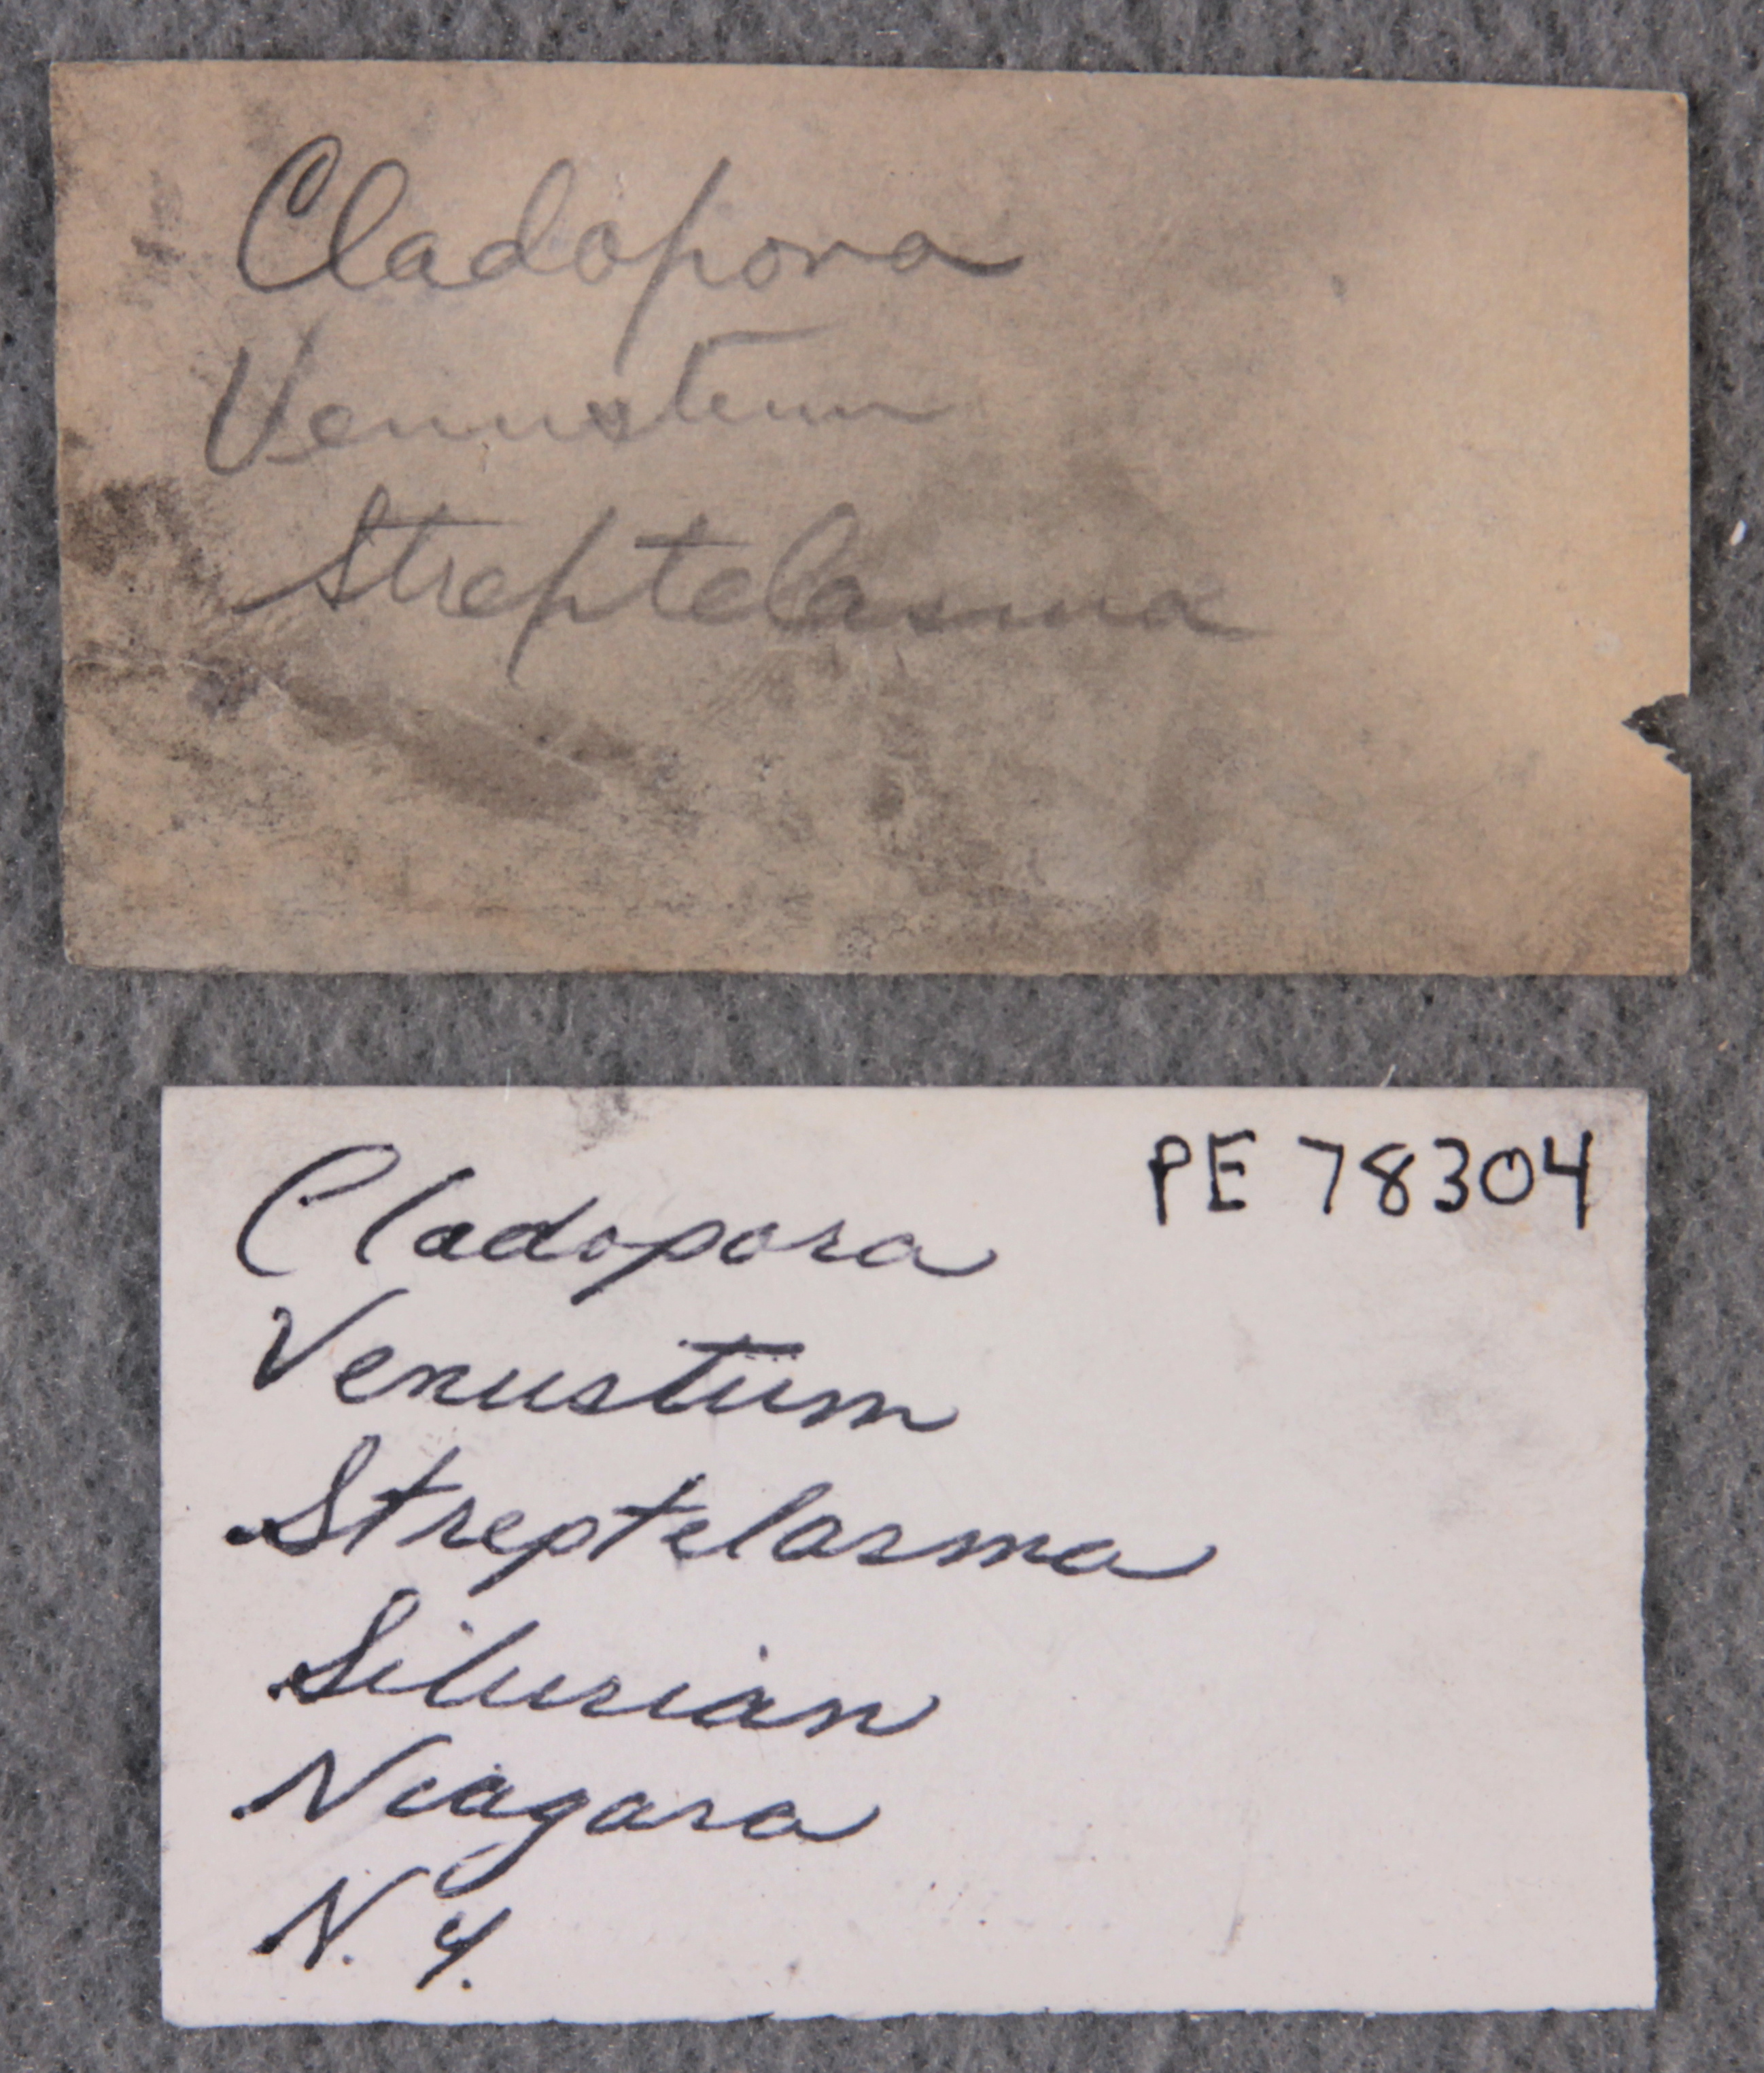 Cladopora
Venustum
Streptelasma
PE 78304
Cladopora
Venustum
Streptelasma
Silurian
Niagara
N. Y.